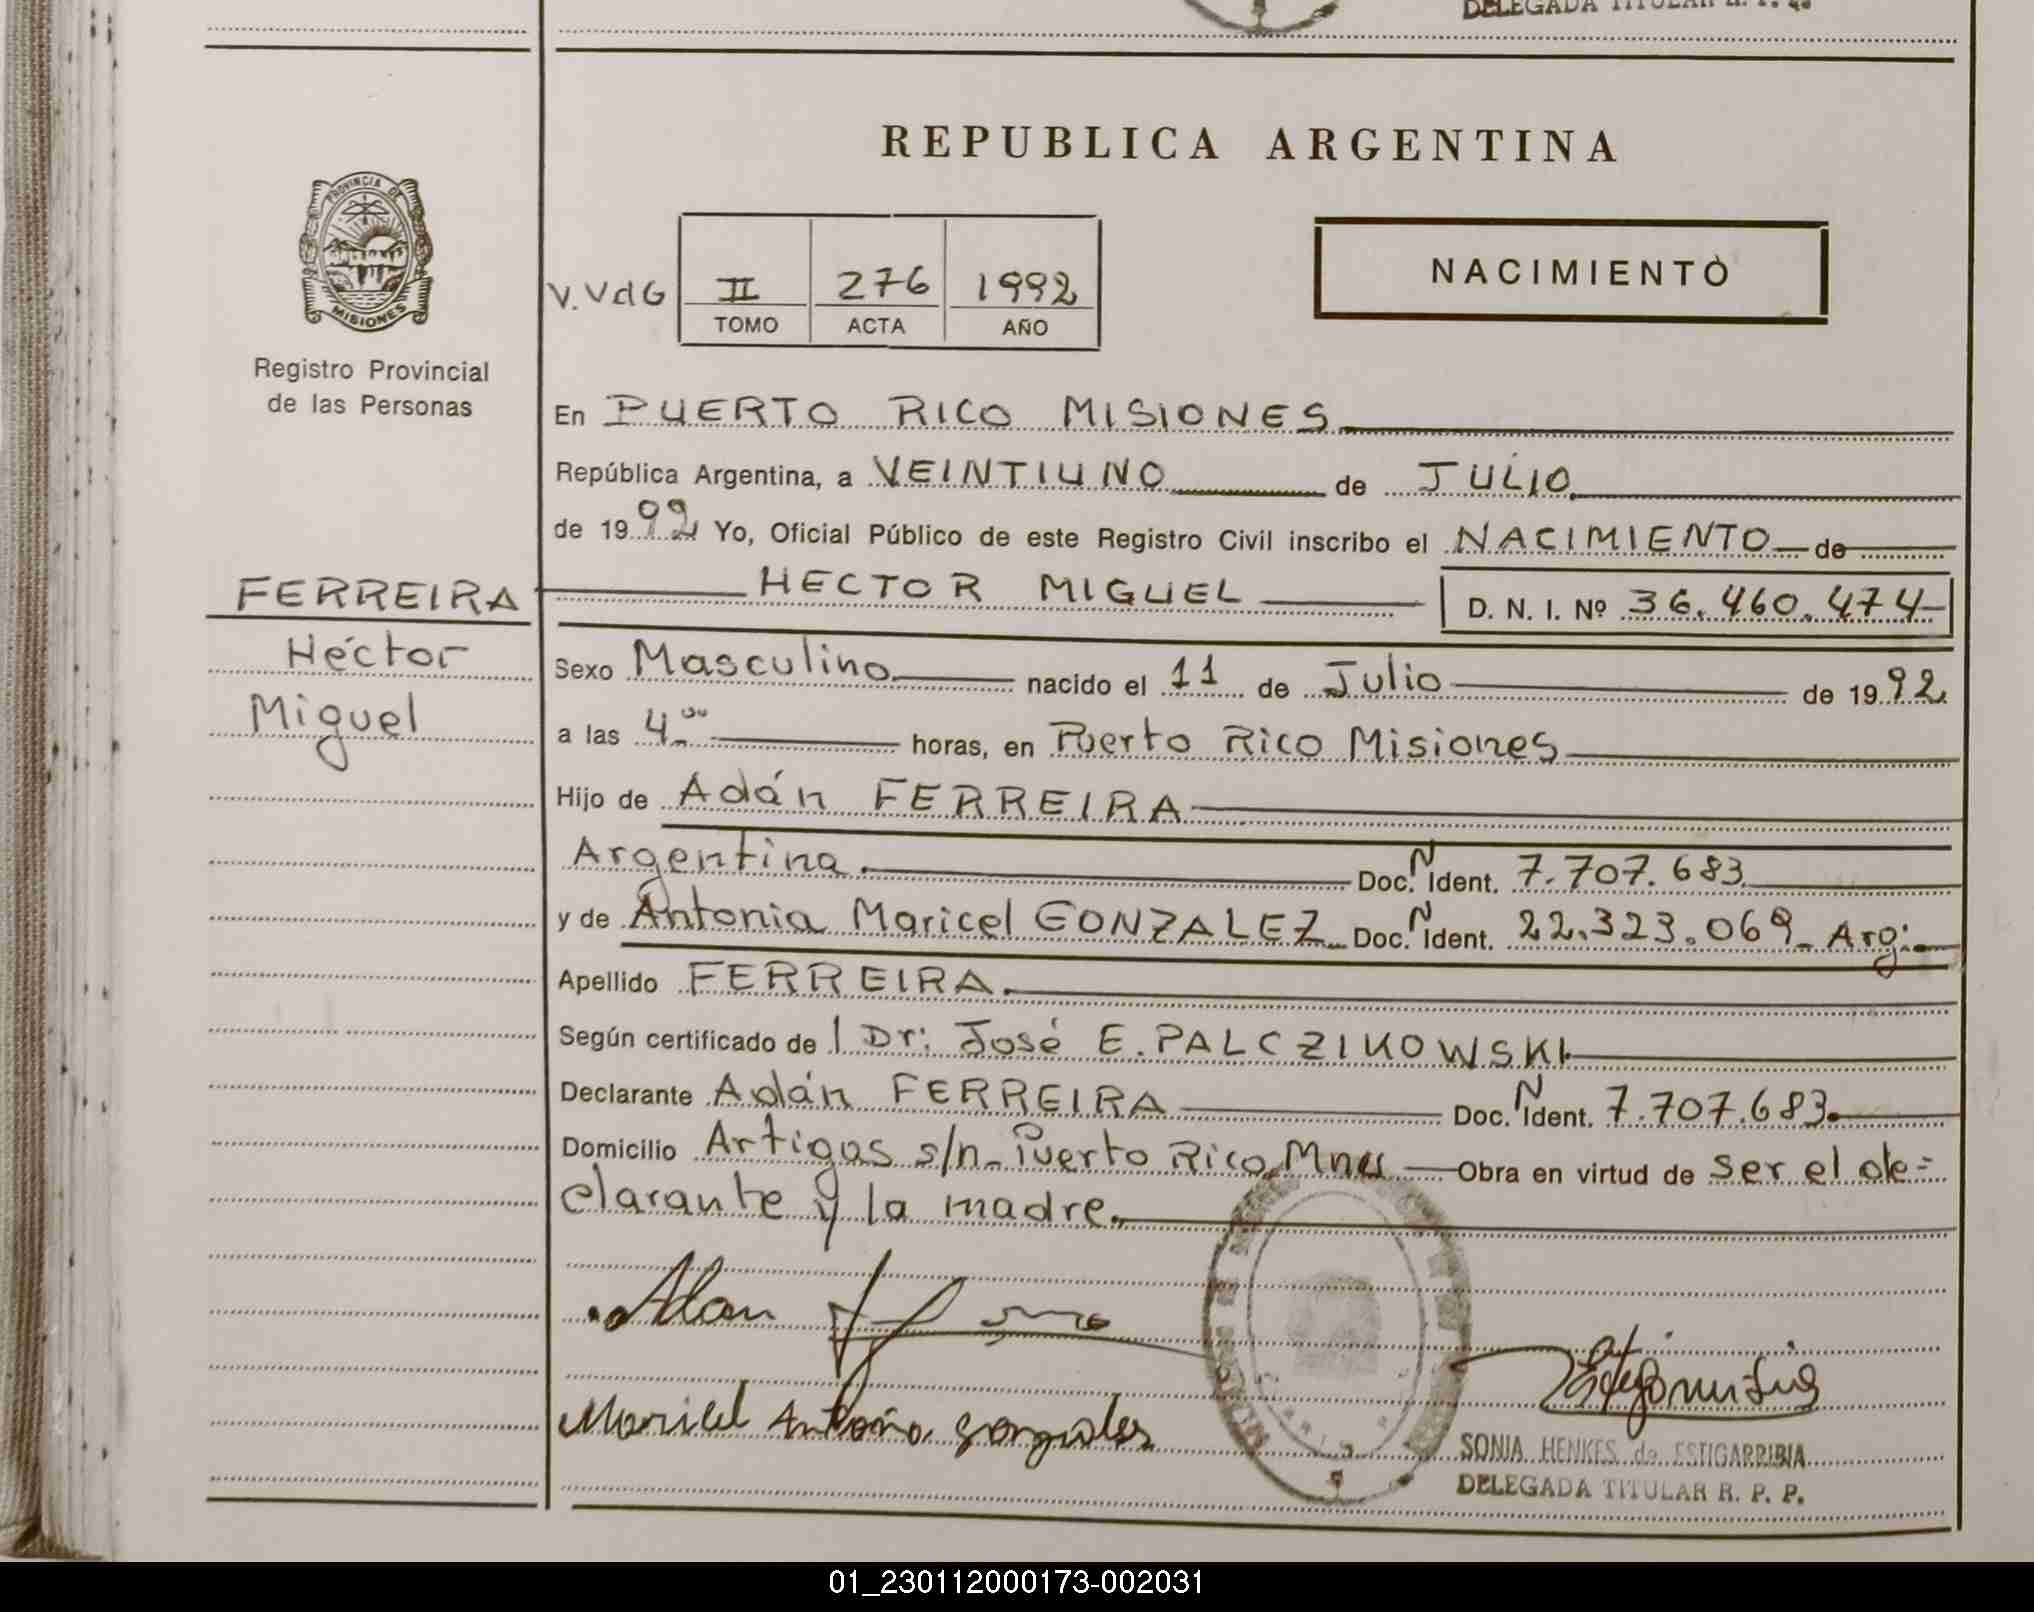 DELEGADA TITULAR R. P. P.
REPUBLICA ARGENTINA
PROVINCIA DE
MISIONES
Registro Provincial
de las Personas
V.VdG II 276 1992
TOMO ACTA AÑO
NACIMIENTO
En PUERTO RICO MISIONES
República Argentina, a VEINTIUNO de JULIO
de 1992 Yo, Oficial Público de este Registro Civil inscribo el NACIMIENTO de
FERREIRA HECTOR MIGUEL D. N. I. Nº 36.460.474
Héctor
Miguel
Sexo Masculino nacido el 11 de Julio de 1992
a las 4.00 horas, en Puerto Rico Misiones
Hijo de Adán FERREIRA
Argentina. Doc. N Ident. 7.707.683
y de Antonia Maricel GONZALEZ Doc. N Ident. 22.323.069 Arg.
Apellido FERREIRA.
Según certificado de l Dr: José E. PALCZIKOWSKI
Declarante Adán FERREIRA Doc. N Ident. 7.707.683.
Domicilio Artigas s/n Puerto Rico Mnes Obra en virtud de ser el de=
clarante y la madre.
Adan
Maricel Antonia gonzales
SONIA HENKES de ESTIGARRIBIA
DELEGADA TITULAR R. P. P.
01_230112000173-002031